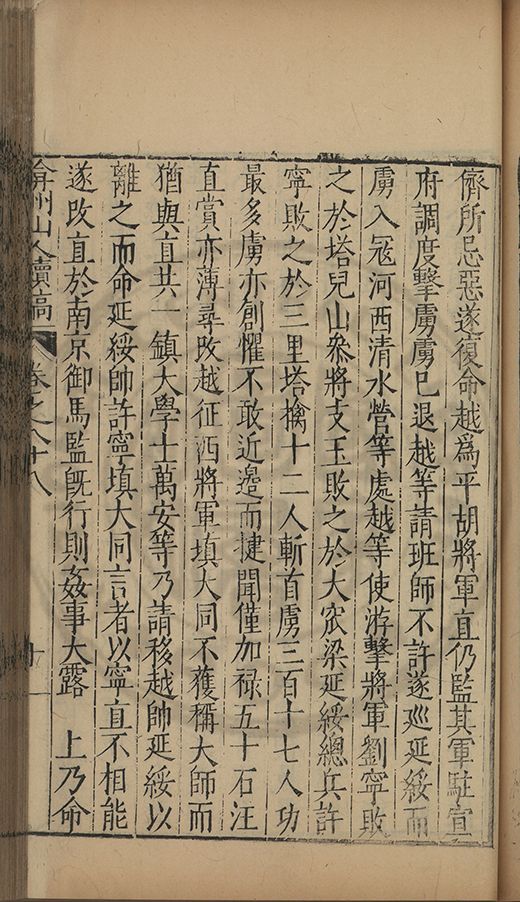 儕所忌惡遂復命越爲平胡將軍直仍監其軍駐宣
府調度擊虜虜已退越等請班師不許遂廵延綏而
虜入冦河西清水營等處越等使游擊將軍劉寧敗
之於塔兒山叅將支玉敗之於大窊梁延綏總兵許
寧敗之於三里塔擒十二人斬首虜三百十七人功
最多虜亦創懼不敢近邉而㨗聞僅加禄五十石汪
直賞亦薄尋攺越征西將軍填大同不獲稱大師而
猶與直共一鎮大學士萬安等乃請移越帥延綏以
離之而命延綏帥許寧填大同言者以寧直不相能
遂攺直於南京御馬監旣行則姦事大露 上乃命
弇州山人續稿 卷之八十八 十一